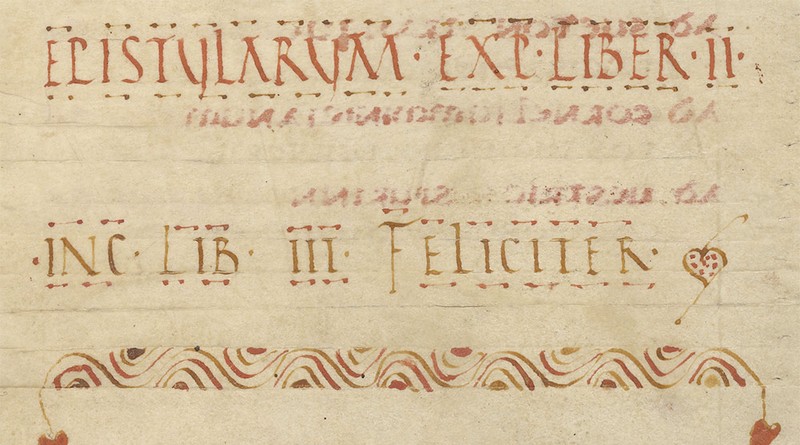 EPISTULARUM · EXP · LIBER · II ·
· INC · LIB · III · FELICITER ·